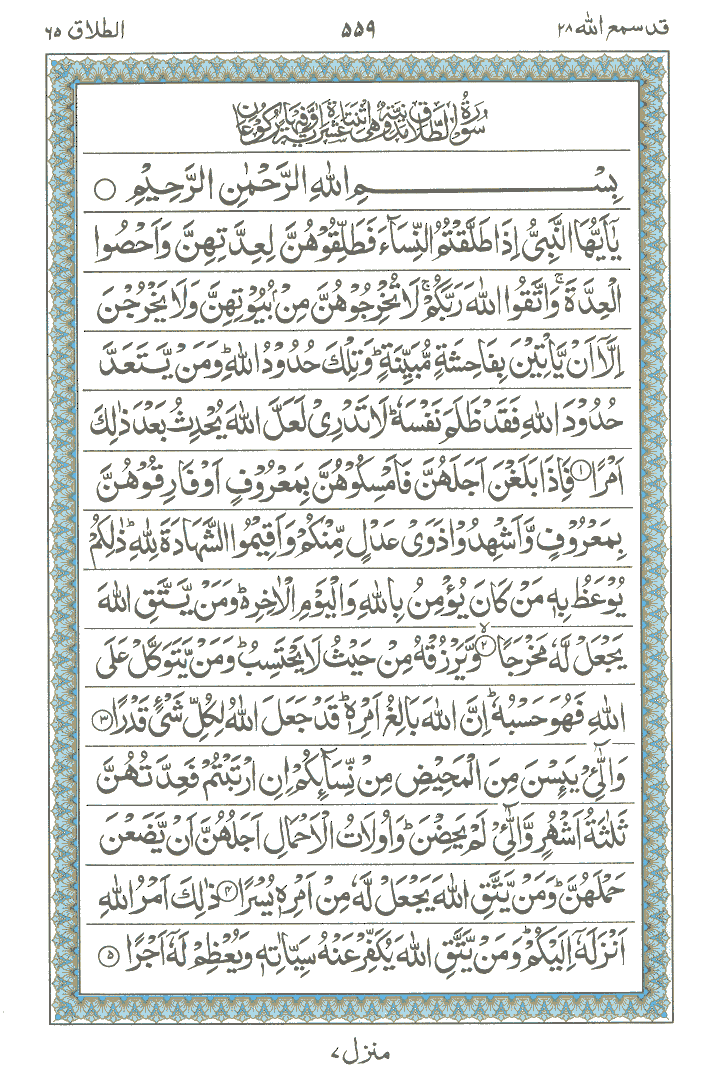 قد سمع الله ۲۸
۵۵۹
الطلاق ۶۵
سُوْرَةُ الطَّلَاقِ مَدَنِيَّةٌ وَّهِيَ اثْنَتَا عَشْرَةَ اٰيَةً وَّفِيْهَا رُكُوْعَانِ
بِسْمِ اللهِ الرَّحْمٰنِ الرَّحِيْمِ ○
يٰۤاَيُّهَا النَّبِيُّ اِذَا طَلَّقْتُمُ النِّسَآءَ فَطَلِّقُوْهُنَّ لِعِدَّتِهِنَّ وَاَحْصُوا
الْعِدَّةَ ۚ وَاتَّقُوا اللهَ رَبَّكُمْ ۚ لَا تُخْرِجُوْهُنَّ مِنْۢ بُيُوْتِهِنَّ وَلَا يَخْرُجْنَ
اِلَّاۤ اَنْ يَّاْتِيْنَ بِفَاحِشَةٍ مُّبَيِّنَةٍ ؕ وَتِلْكَ حُدُوْدُ اللهِ ؕ وَمَنْ يَّتَعَدَّ
حُدُوْدَ اللهِ فَقَدْ ظَلَمَ نَفْسَهٗ ؕ لَا تَدْرِىْ لَعَلَّ اللهَ يُحْدِثُ بَعْدَ ذٰلِكَ
اَمْرًا ۝۱ فَاِذَا بَلَغْنَ اَجَلَهُنَّ فَاَمْسِكُوْهُنَّ بِمَعْرُوْفٍ اَوْ فَارِقُوْهُنَّ
بِمَعْرُوْفٍ وَّاَشْهِدُوْا ذَوَىْ عَدْلٍ مِّنْكُمْ وَاَقِيْمُوا الشَّهَادَةَ لِلّٰهِ ؕ ذٰلِكُمْ
يُوْعَظُ بِهٖ مَنْ كَانَ يُؤْمِنُ بِاللهِ وَالْيَوْمِ الْاٰخِرِ ؕ وَمَنْ يَّتَّقِ اللهَ
يَجْعَلْ لَّهٗ مَخْرَجًا ۝۲ۙ وَّيَرْزُقْهُ مِنْ حَيْثُ لَا يَحْتَسِبُ ؕ وَمَنْ يَّتَوَكَّلْ عَلَى
اللهِ فَهُوَ حَسْبُهٗ ؕ اِنَّ اللهَ بَالِغُ اَمْرِهٖ ؕ قَدْ جَعَلَ اللهُ لِكُلِّ شَىْءٍ قَدْرًا ۝۳
وَالّٰٓـئِْ يَئِسْنَ مِنَ الْمَحِيْضِ مِنْ نِّسَآئِكُمْ اِنِ ارْتَبْتُمْ فَعِدَّتُهُنَّ
ثَلٰثَةُ اَشْهُرٍ وَّالّٰٓـئِْ لَمْ يَحِضْنَ ؕ وَاُولَاتُ الْاَحْمَالِ اَجَلُهُنَّ اَنْ يَّضَعْنَ
حَمْلَهُنَّ ؕ وَمَنْ يَّتَّقِ اللهَ يَجْعَلْ لَّهٗ مِنْ اَمْرِهٖ يُسْرًا ۝۴ ذٰلِكَ اَمْرُ اللهِ
اَنْزَلَهٗۤ اِلَيْكُمْ ؕ وَمَنْ يَّتَّقِ اللهَ يُكَفِّرْ عَنْهُ سَيِّاٰتِهٖ وَيُعْظِمْ لَهٗۤ اَجْرًا ۝۵
منزل ۷